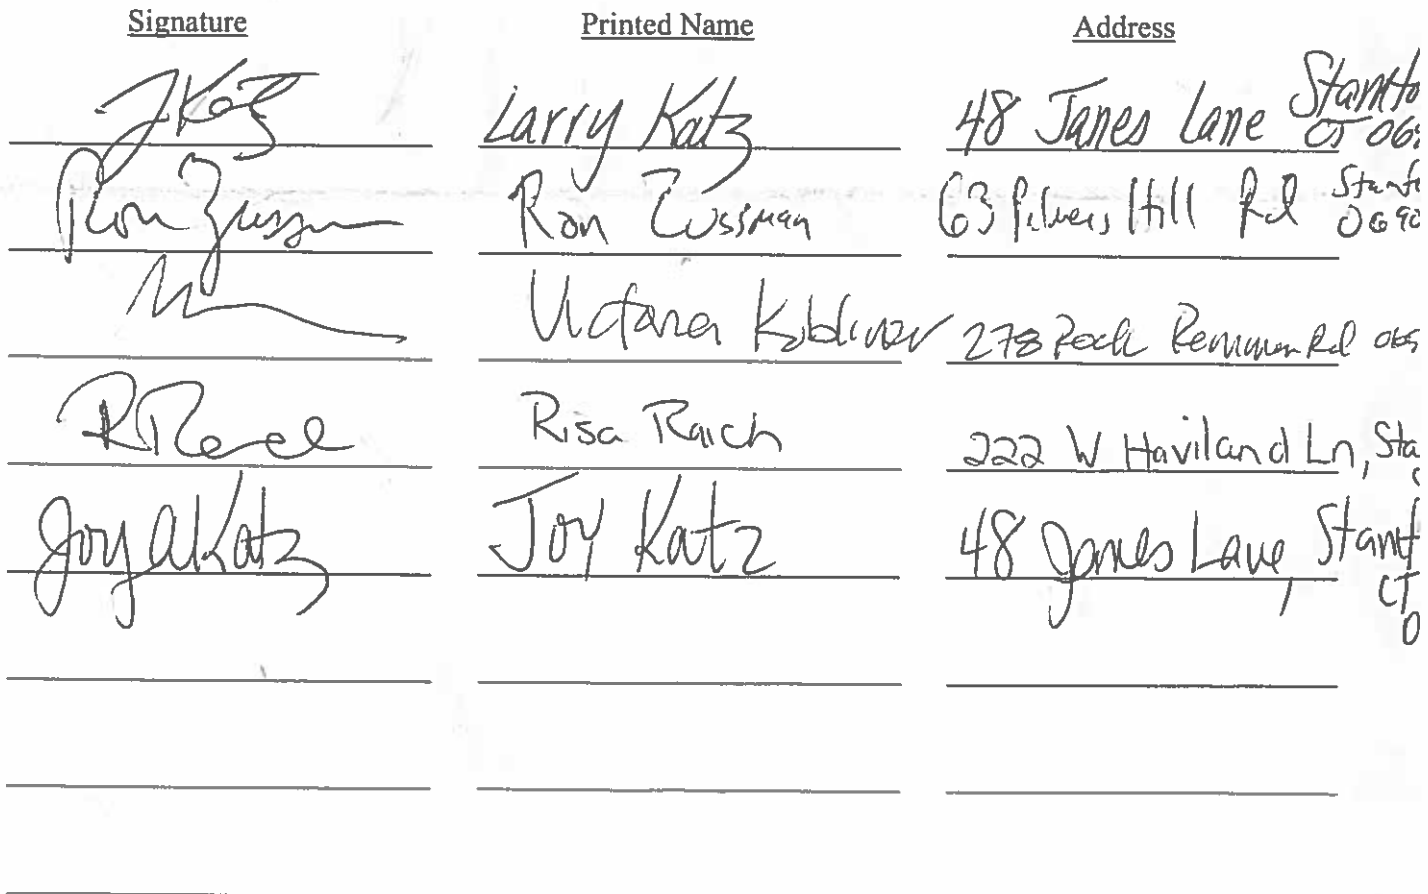 Signature Printed Name Address
JKatz Larry Katz 48 Janes Lane Stamfo
CT 069
Ron Zussman Ron Zussman 63 Hill Rd Stamfo
0690
278 Rock Rimmon Rd 069
Risa Raich 222 W Haviland Ln, Sta
Joy A Katz Joy Katz 48 Janes Lane, Stamf
CT
0